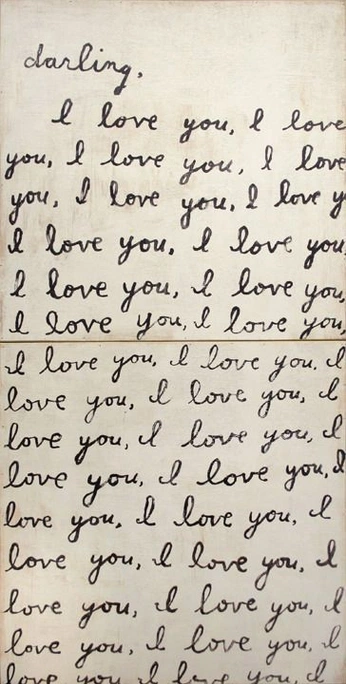 darling,
I love you, I love
you, I love you, I love
you, I love you, I love y
I love you, I love you,
I love you, I love you,
I love you, I love you,
I love you, I love you, I
love you, I love you, I
love you, I love you, I
love you, I love you, I
love you, I love you, I
love you, I love you, I
love you, I love you, I
love you, I love you, I
love you, I love you, I